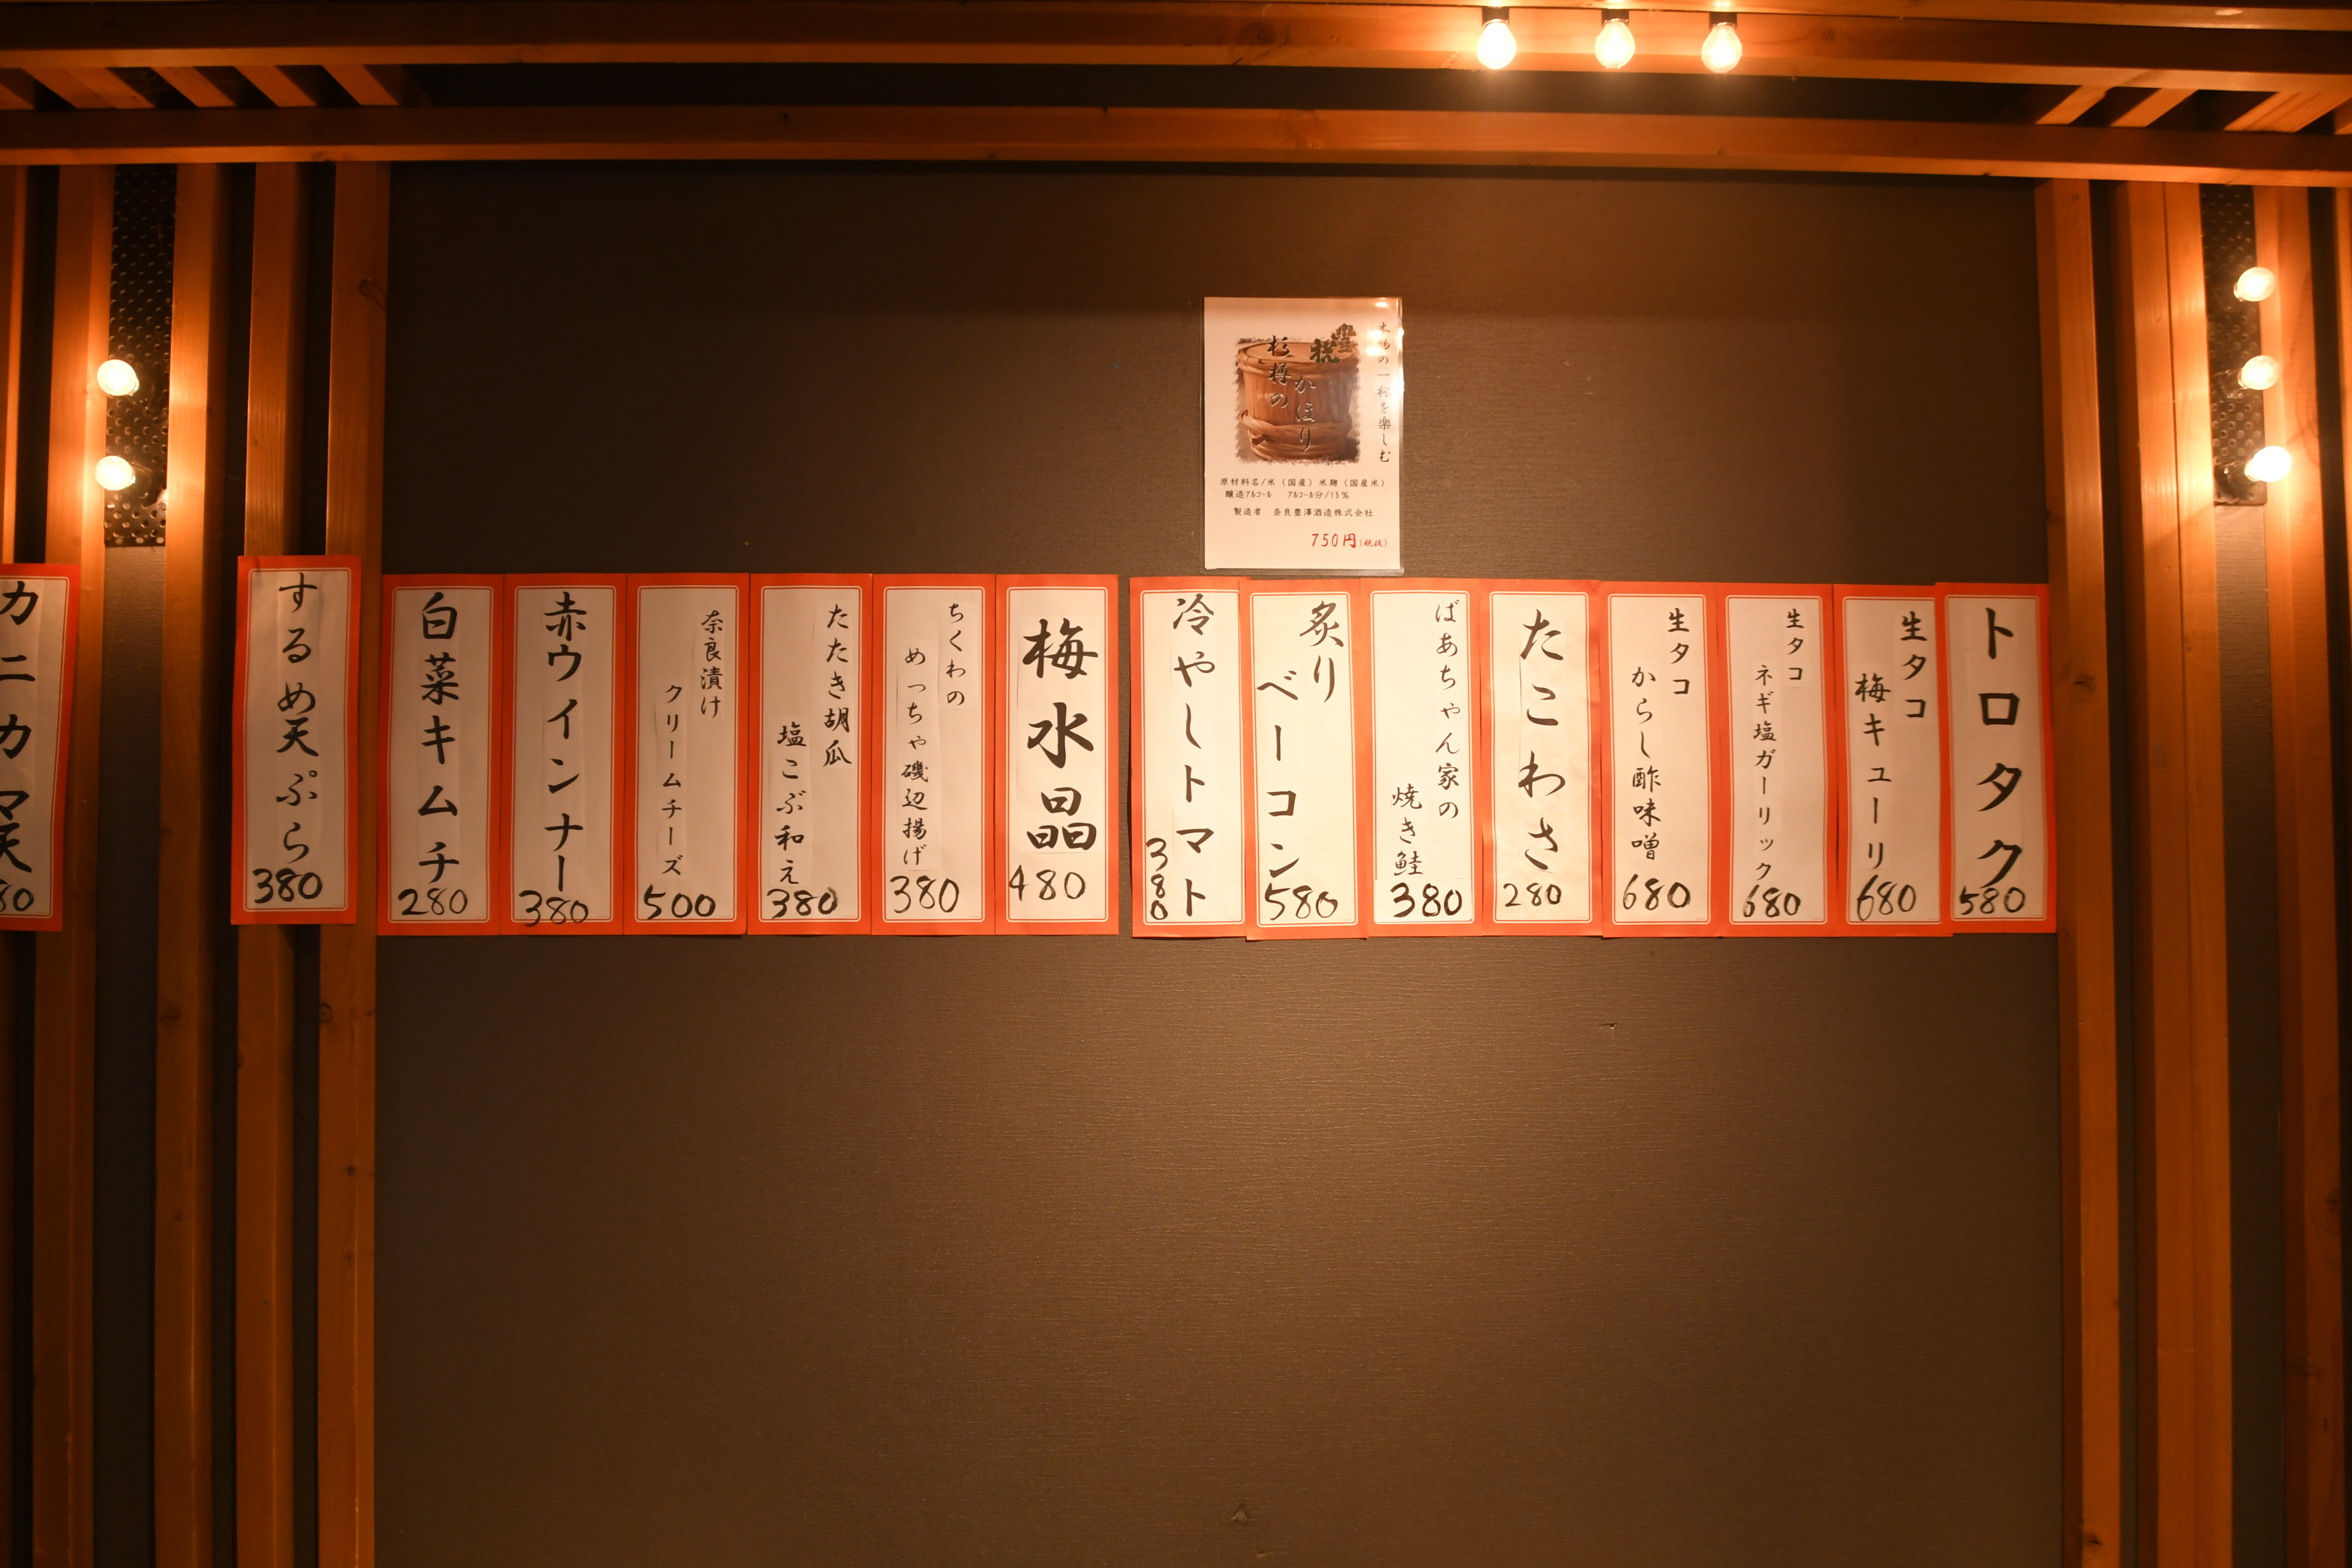 木樽の一杯を楽しむ
豊祝
かほり
杉樽の
原材料名/米（国産）米麹（国産米）
醸造アルコール　アルコール分/15％
製造者　奈良豊澤酒造株式会社
750円(税抜)
トロタク
580
生タコ
梅キューリ
680
生タコ
ネギ塩ガーリック
680
生タコ
からし酢味噌
680
たこわさ
280
ばあちゃん家の
焼き鮭
380
炙り
ベーコン
580
冷やしトマト
380
梅水晶
480
ちくわの
めっちゃ磯辺揚げ
380
たたき胡瓜
塩こぶ和え
380
奈良漬け
クリームチーズ
500
赤ウインナー
380
白菜キムチ
280
するめ天ぷら
380
カニカマ天
80